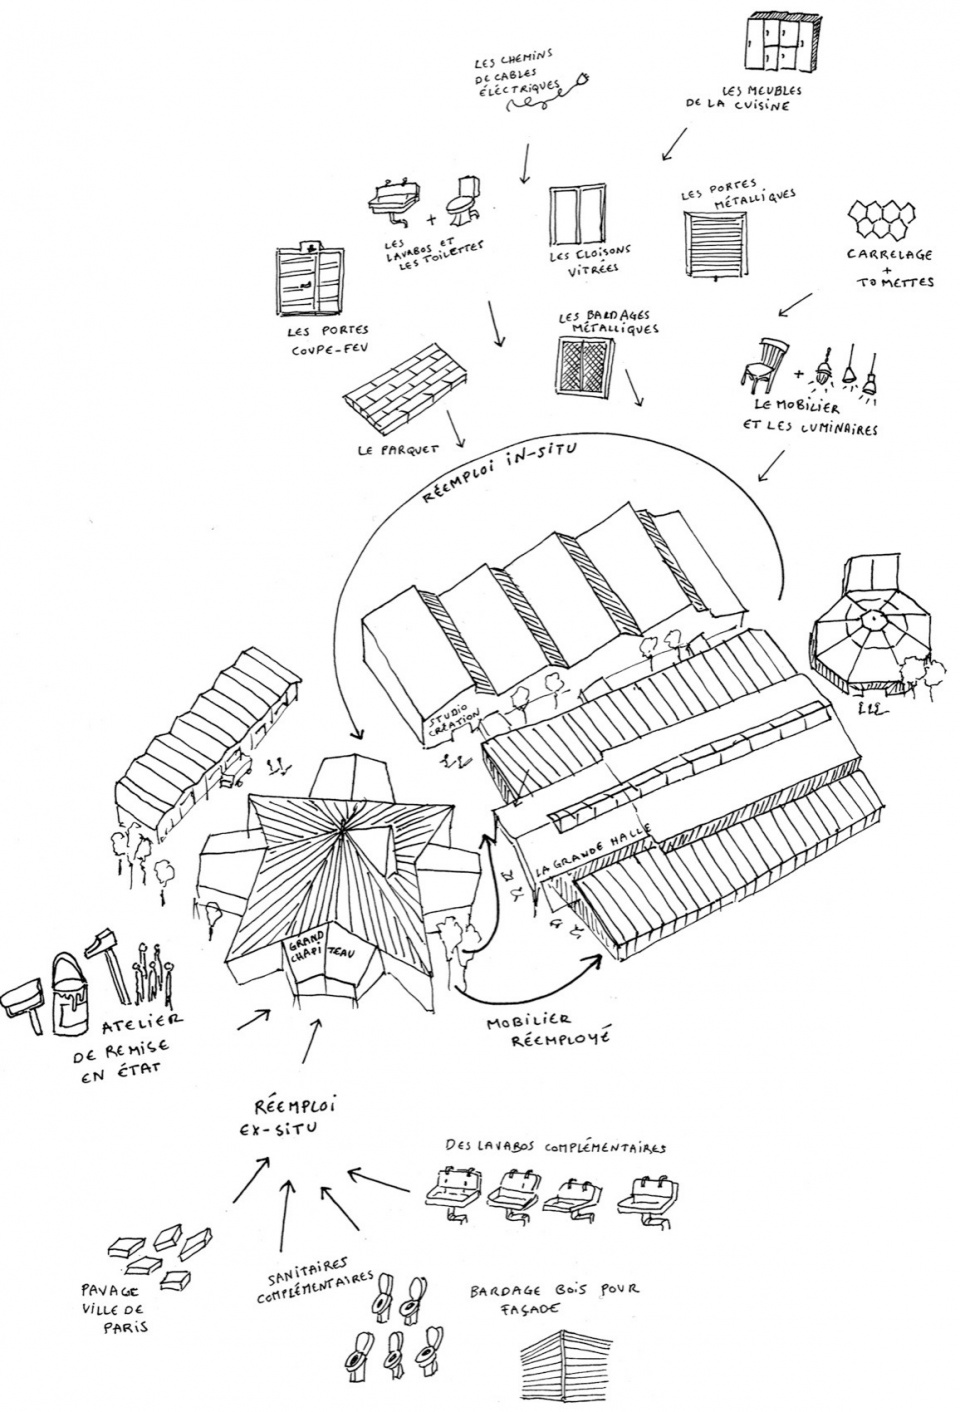 LES CHEMINS
DE CABLES
ÉLECTRIQUES
LES MEUBLES
DE LA CUISINE
LES
LAVABOS ET
LES TOILETTES
LES CLOISONS
VITRÉES
LES PORTES
MÉTALLIQUES
CARRELAGE
+
TOMETTES
LES PORTES
COUPE-FEU
LES BARDAGES
MÉTALLIQUES
LE PARQUET
LE MOBILIER
ET LES LUMINAIRES
RÉEMPLOI IN-SITU
STUDIO
CRÉATION
LA GRANDE HALLE
GRAND
CHAPITEAU
ATELIER
DE REMISE
EN ÉTAT
MOBILIER
RÉEMPLOYÉ
RÉEMPLOI
EX-SITU
DES LAVABOS COMPLÉMENTAIRES
PAVAGE
VILLE DE
PARIS
SANITAIRES
COMPLÉMENTAIRES
BARDAGE BOIS POUR
FAÇADE